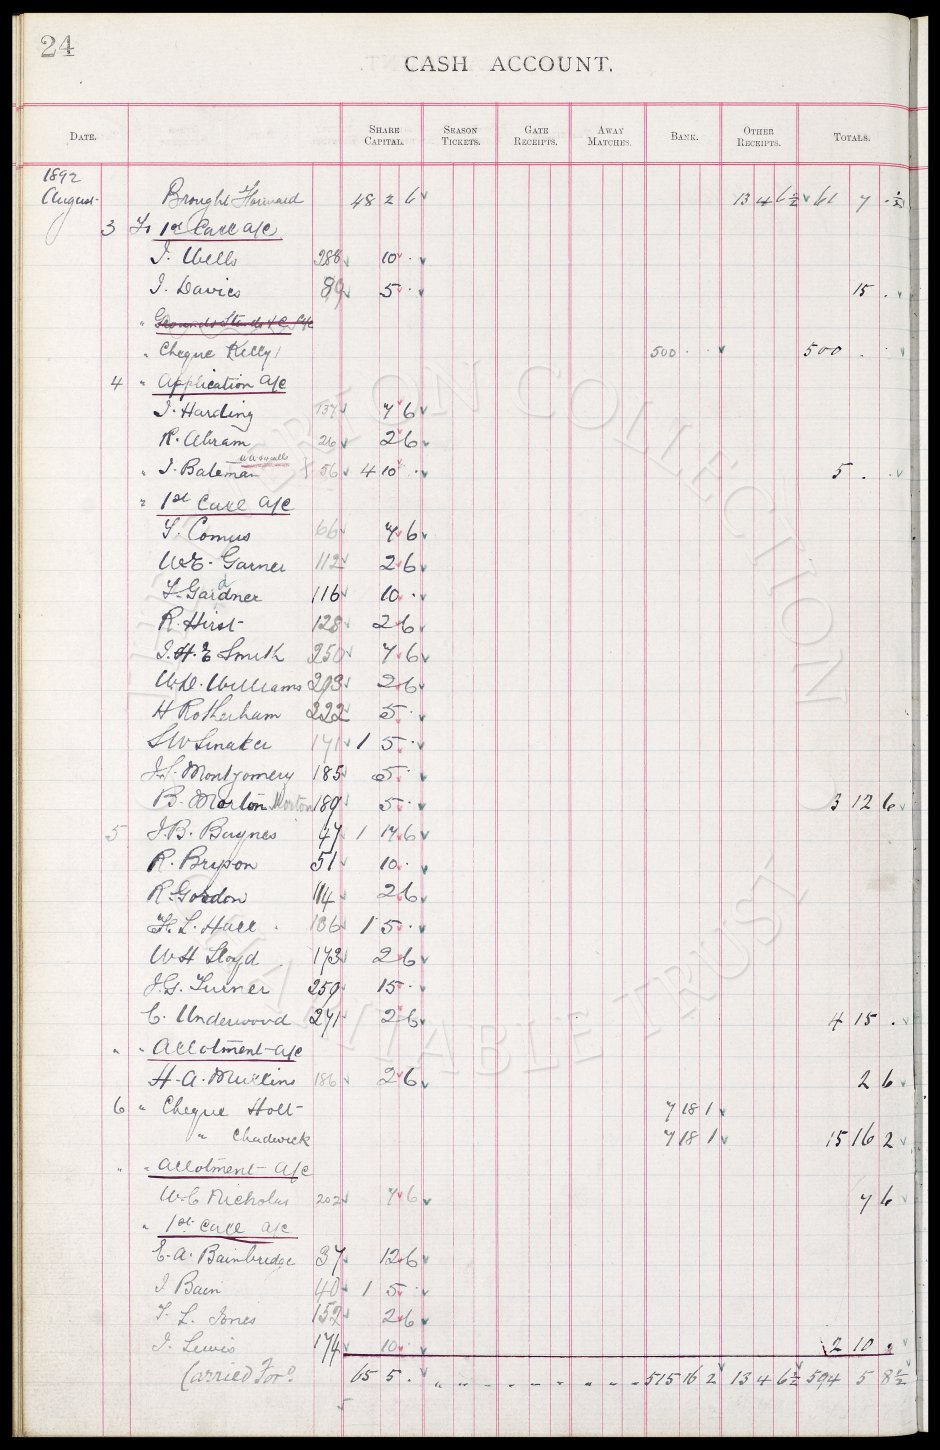 24
CASH ACCOUNT.
DATE. SHARE CAPITAL. SEASON TICKETS. GATE RECEIPTS. AWAY MATCHES. BANK. OTHER RECEIPTS. TOTALS.
1892
August Brought Forward 48 2 6 13 4 6½ 61 7 ·½
3 To 1st Call a/c
J. Wells 286 10 ·
J. Davies 89 5 · 15 .
" Grounds Stands &c a/c
" Cheque Kelly 500 · · 500 . ·
4 " Application a/c
J. Harding 137 7 6
R. Abram 26 2 6
" J. Bateman 56 4 10 · 5 . .
" 1st Call a/c
T. Comus 66 7 6
W.E. Garner 112 2 6
T. Gardner 116 10 ·
R. Hirst 128 2 6
J.H.E Smith 250 7 6
W.D. Williams 293 2 6
H Rotherham 222 5 ·
S W Sinaker 171 1 5 ·
J.S. Montgomery 185 5 ·
B. Morton Morton 189 5 · 3 12 6
5 J.B. Baynes 47 1 17 6
R. Bryson 51 10 ·
R. Gordon 114 2 6
H. L. Hall 136 1 5 ·
W H Lloyd 173 2 6
J.G. Turner 259 15 ·
C. Underwood 271 2 6 4 15 .
" " Allotment a/c
H. A. Mullins 186 2 6 2 6
6 " Cheque Holt 7 18 1
" Chadwick 7 18 1 15 16 2
" " Allotment a/c
W.C Nicholas 202 7 6 7 6
" 1st Call a/c
E. A. Bainbridge 37 12 6
J Bain 40 1 5 ·
T. L. Jones 152 2 6
J. Lewis 174 10 · 2 10 .
Carried Ford 65 5 . " " " " " " " " " 515 16 2 13 4 6½ 594 5 8½